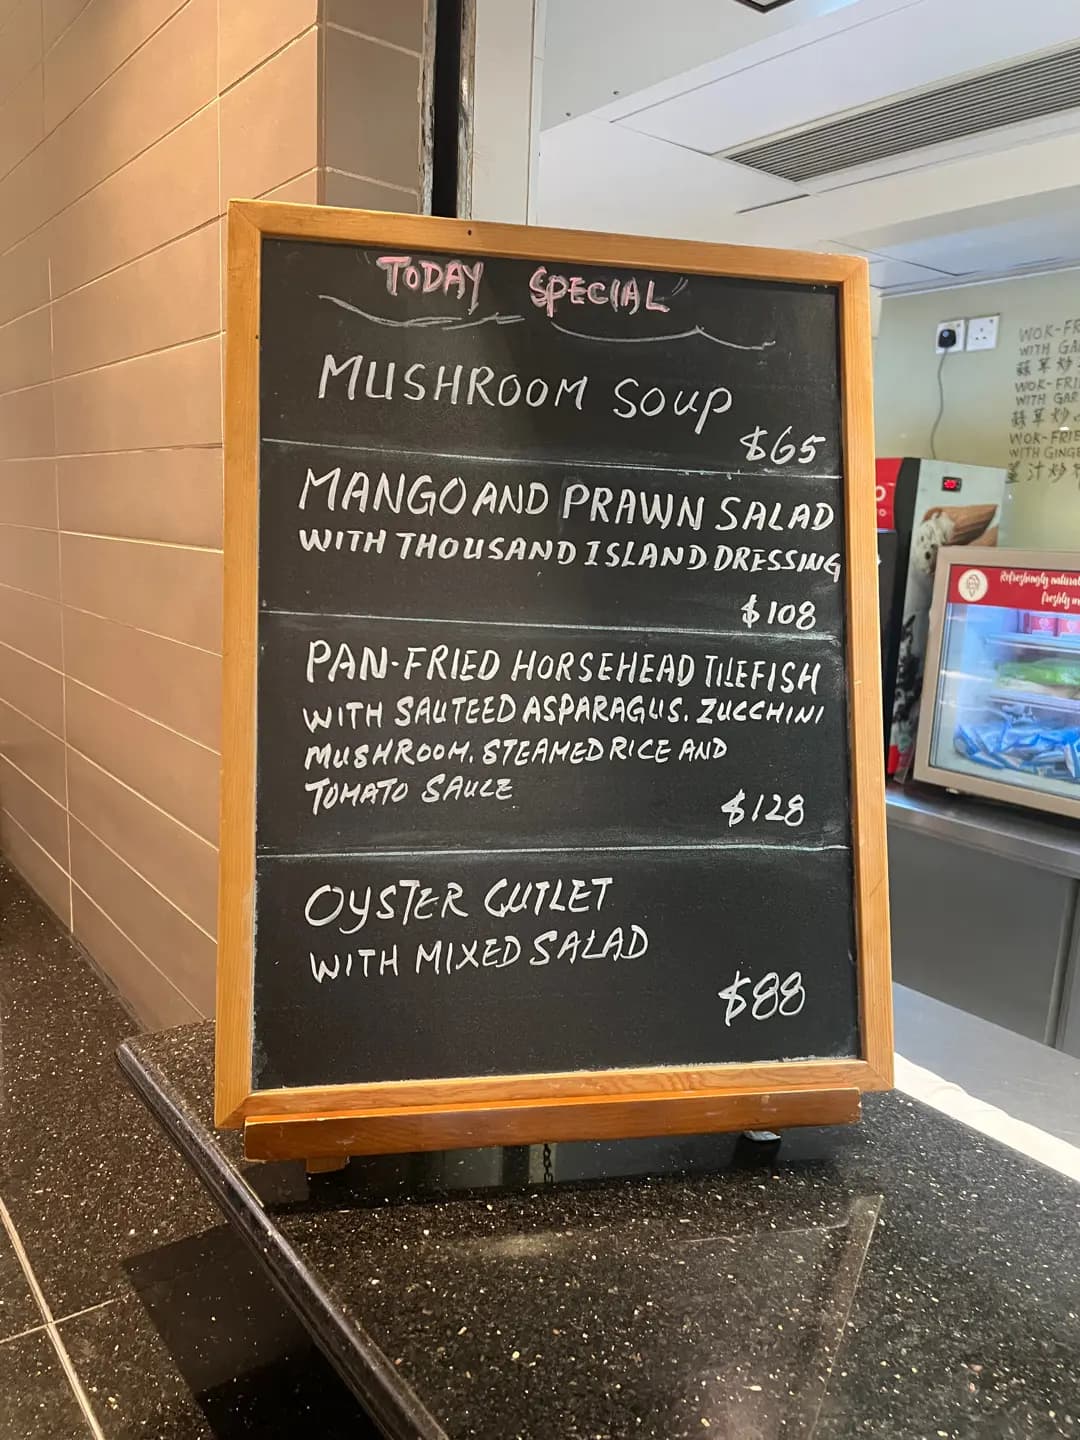 TODAY SPECIAL
MUSHROOM SOUP
$65
MANGO AND PRAWN SALAD
WITH THOUSAND ISLAND DRESSING
$108
PAN-FRIED HORSEHEAD TILEFISH
WITH SAUTEED ASPARAGUS. ZUCCHINI
MUSHROOM. STEAMED RICE AND
TOMATO SAUCE
$128
OYSTER CUTLET
WITH MIXED SALAD
$88
WOK-FR
WITH GA
蒜茸炒
WOK-FRI
WITH GAR
蒜茸炒
WOK-FRIE
WITH GINGE
薑汁炒
Refreshingly natural
freshly m